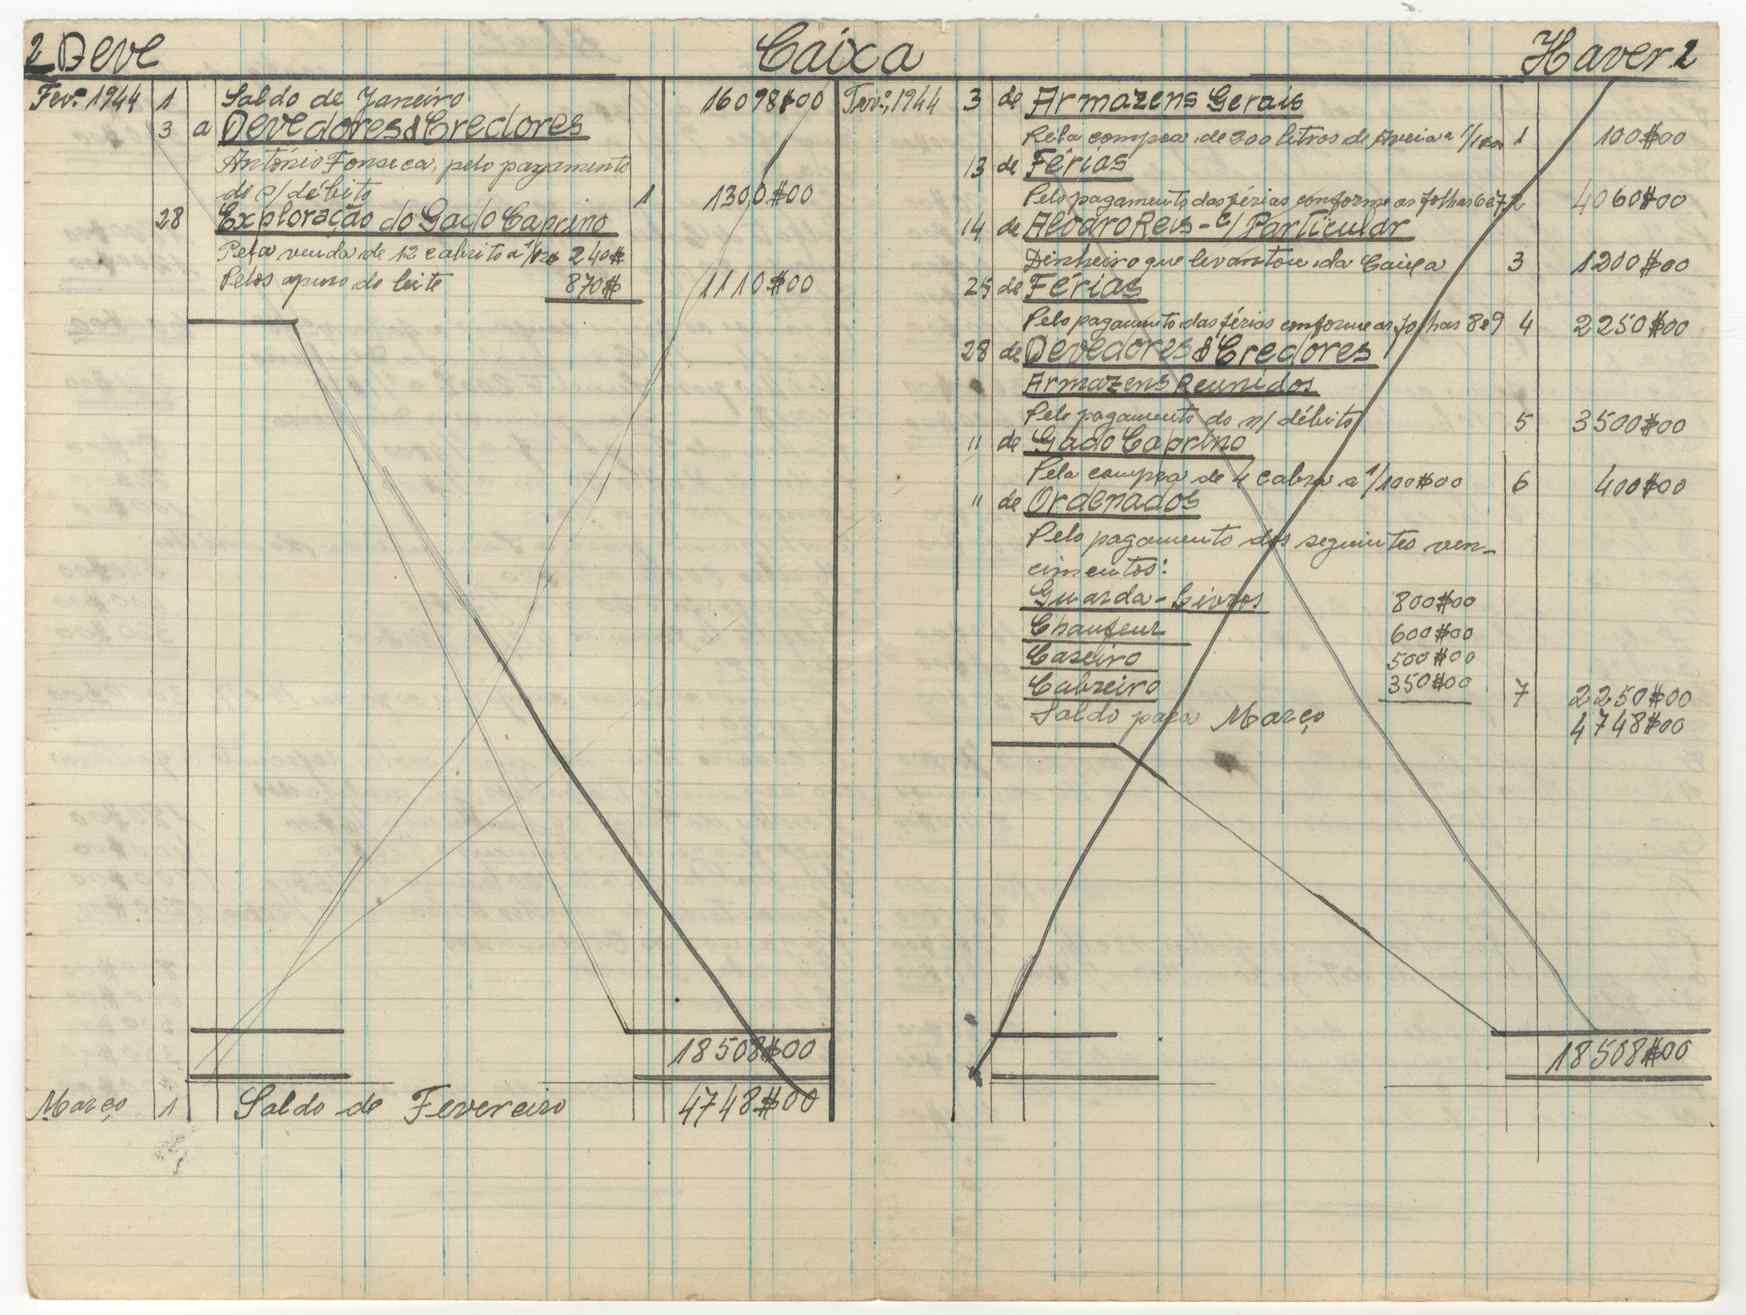 2 Deve
Caixa
Haver 2
Fevº 1944 1 Saldo de Janeiro 16098$00
3 a Devedores & Credores
António Fonseca, pelo pagamento
do s/ débito 1 1300$00
28 Exploração do Gado Caprino
Pela venda de 12 cabrito a 240$
Pelos apuro do leite 870$ 1110$00
18508$00
Março 1 Saldo de Fevereiro 4748$00
Fevº, 1944 3 de Armazens Gerais
Pela compra de 200 litros de Aveia a 1 100$00
13 de Férias
Pelo pagamento das férias conforme as folhas 6 e 7 2 4060$00
14 de Alvdro Reis - c/ Particular
Dinheiro que levantou da Caixa 3 1200$00
25 de Férias
Pelo pagamento das férias conforme as folhas 8 e 9 4 2250$00
28 de Devedores & Credores
Armazens Reunidos
Pelo pagamento do n/ débito 5 3500$00
" de Gado Caprino
Pela compra de 4 cabra a 1/100$00 6 400$00
" de Ordenados
Pelo pagamento dos seguintes ven-
cimentos:
Guarda-Livros 800$00
Chaufeur 600$00
Caseiro 500$00
Cabreiro 350$00 7 2250$00
Saldo para Março 4748$00
18508$00